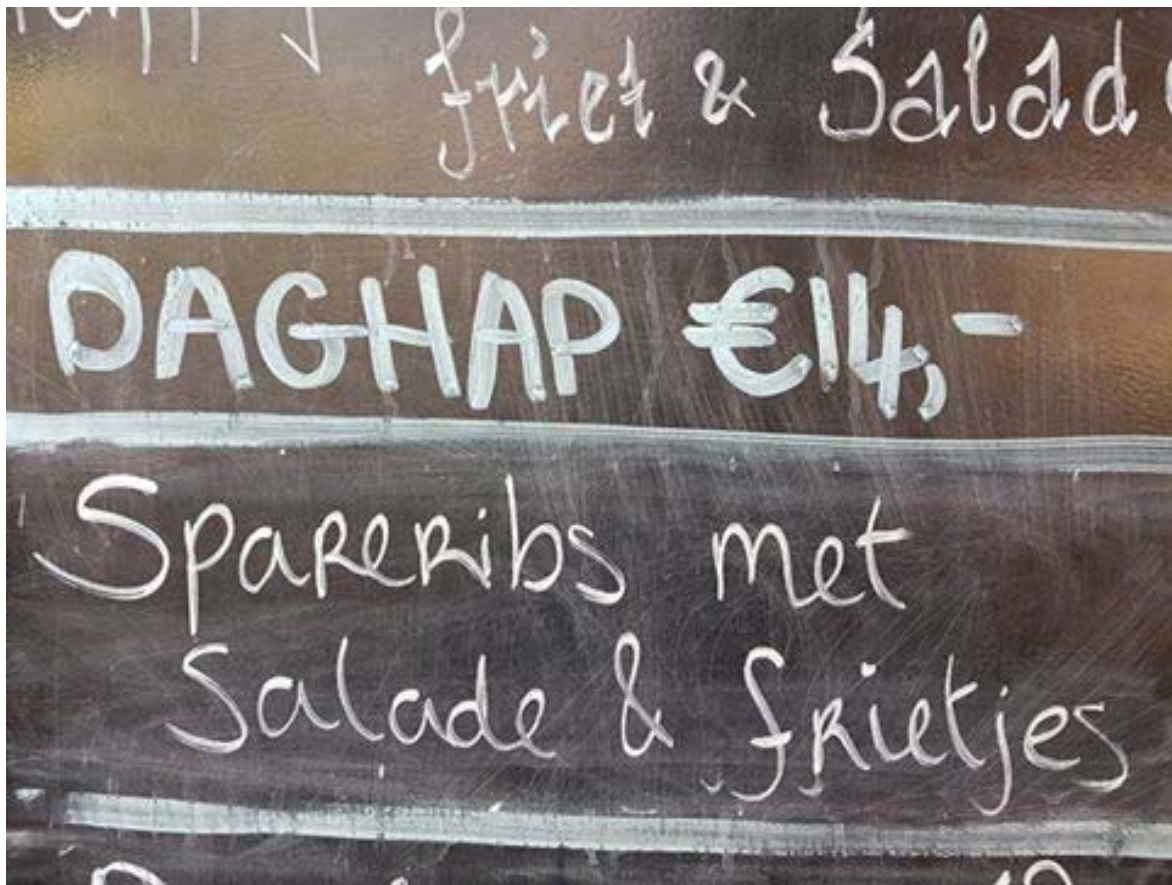 friet & Salad
DAGHAP €14,-
Spareribs met
Salade & frietjes